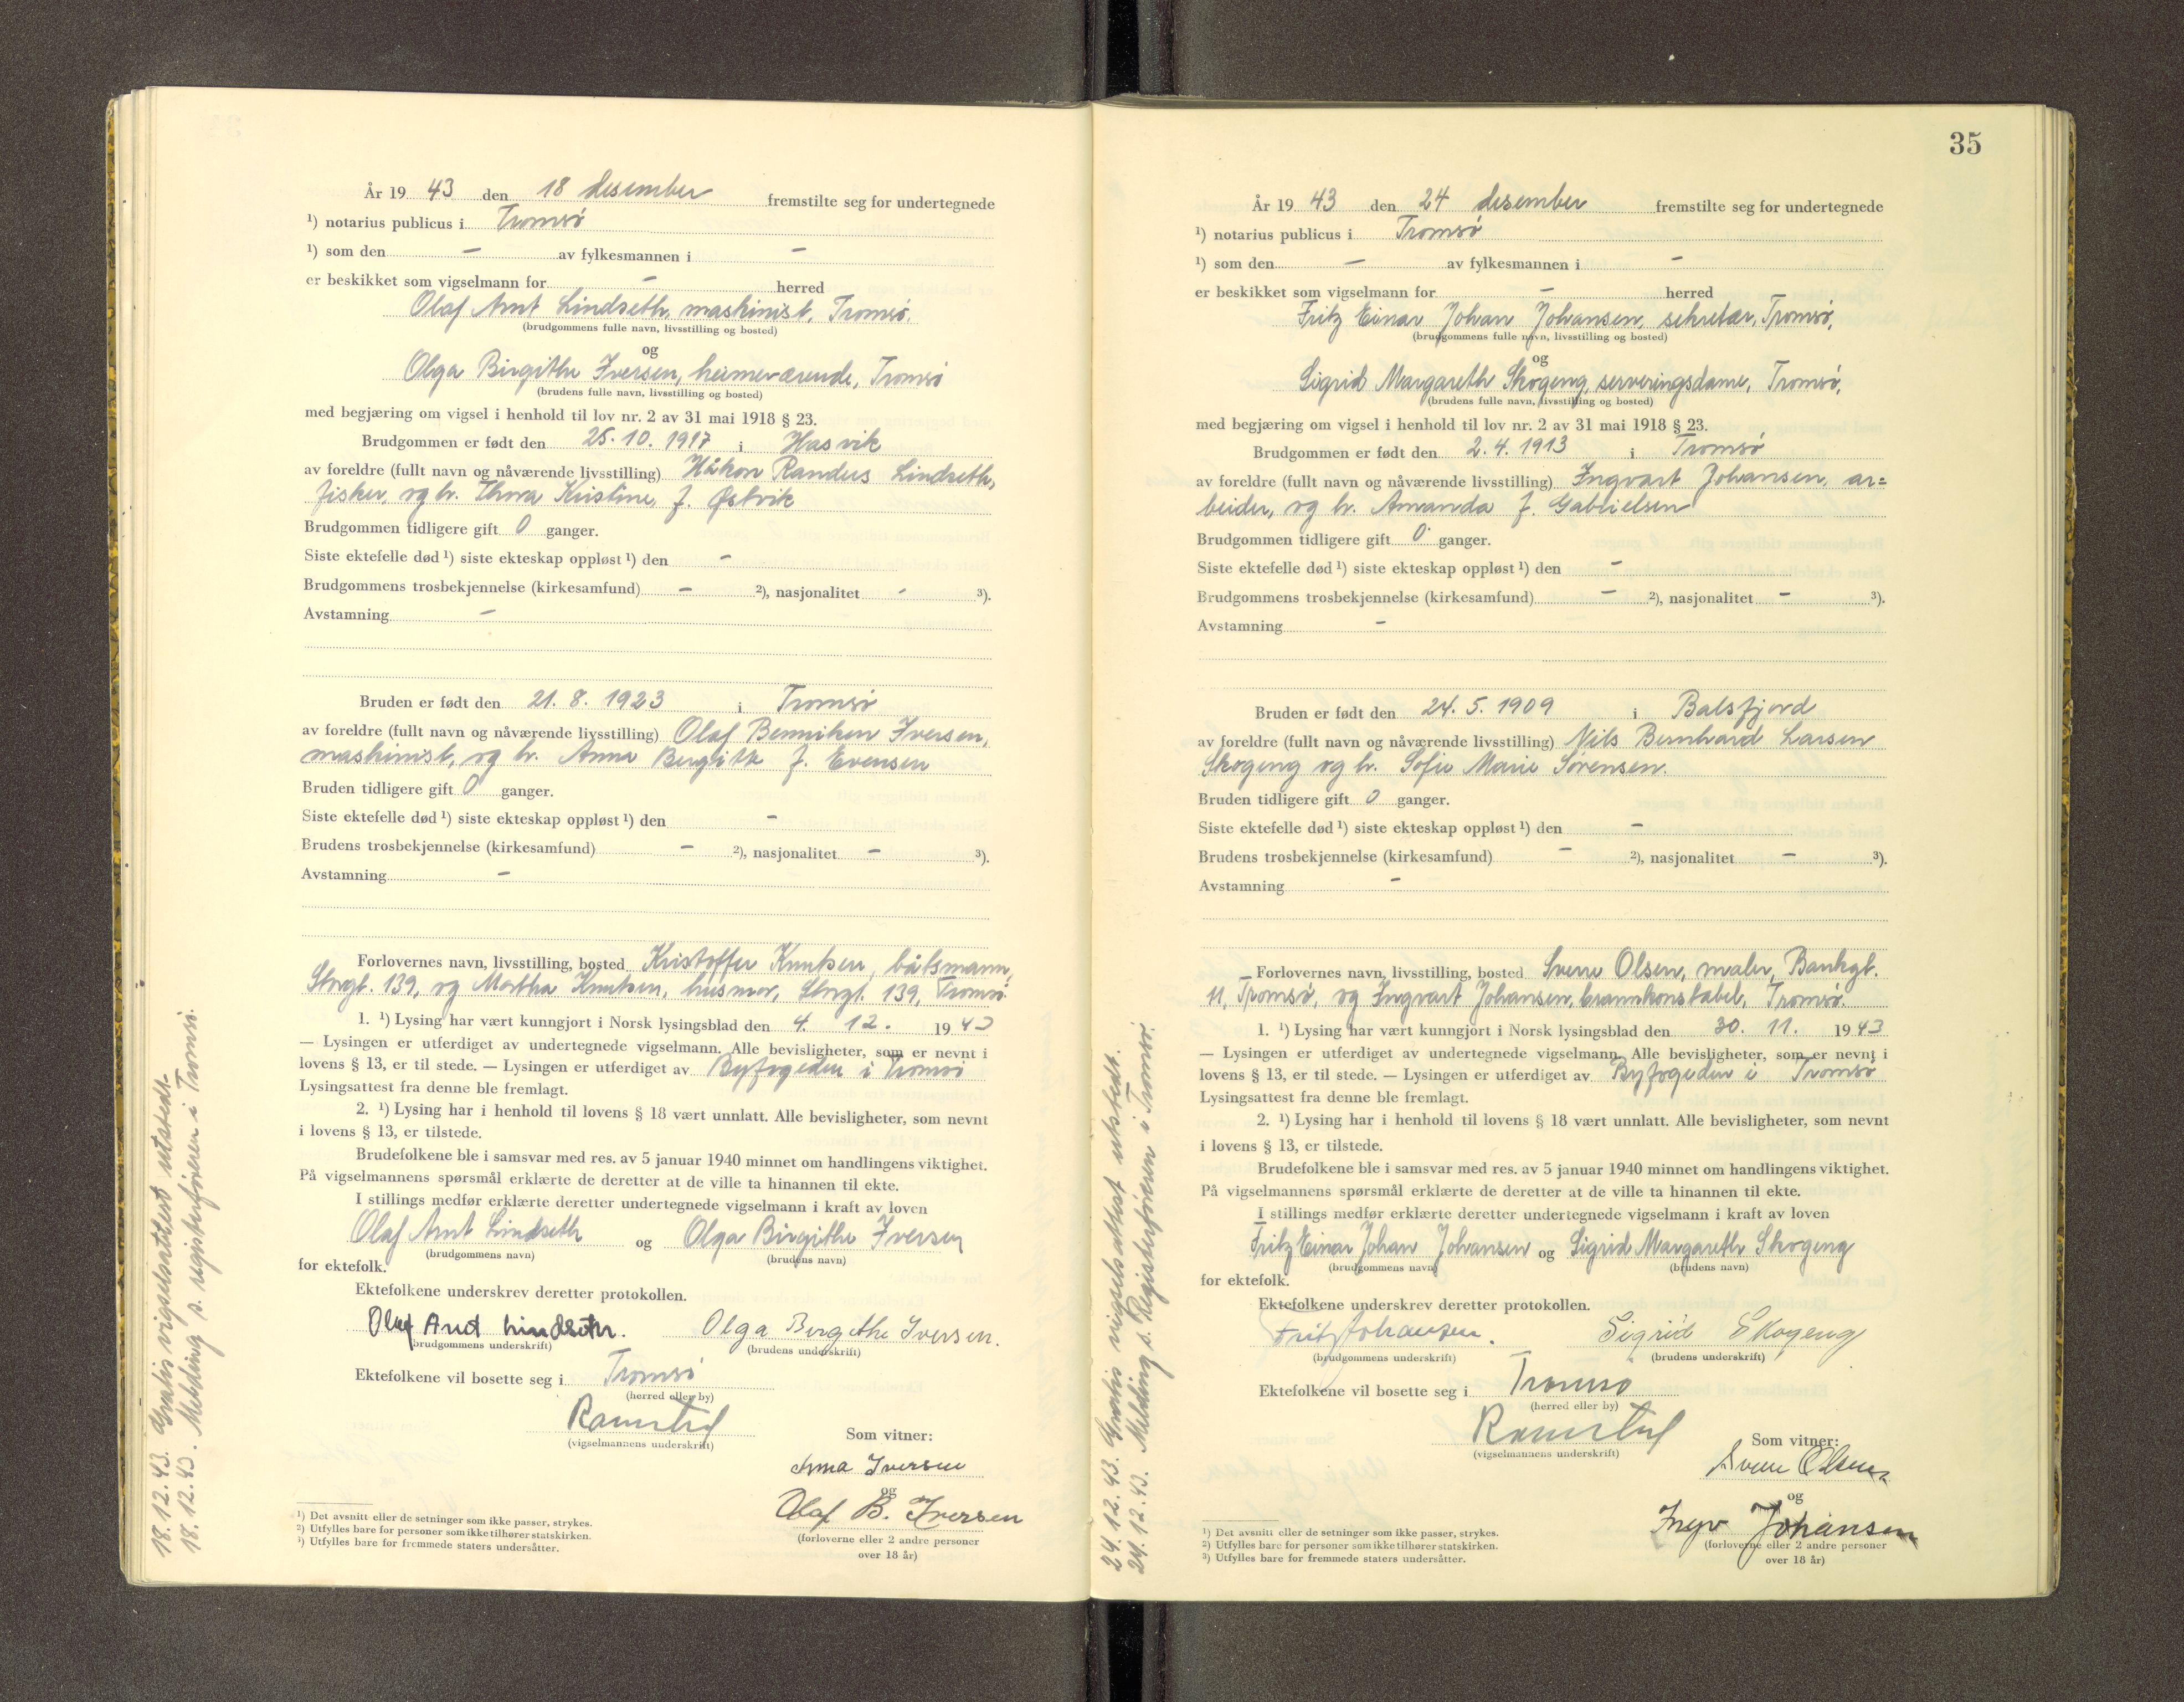 År 1943 den 18 desember fremstilte seg for undertegnede
¹) notarius publicus i Tromsø
¹) som den - av fylkesmannen i -
er beskikket som vigselmann for - herred
Olaf Arnt Lindseth, maskinist, Tromsø.
(brudgommens fulle navn, livsstilling og bosted)
og
Olga Birgithe Iversen, heimeværende, Tromsø
(brudens fulle navn, livsstilling og bosted)
med begjæring om vigsel i henhold til lov nr. 2 av 31 mai 1918 § 23.
Brudgommen er født den 25.10.1917 i Hasvik
av foreldre (fullt navn og nåværende livsstilling) Håkon Randus Lindseth,
fisker, og h. Thora Kristine, f. Østvik
Brudgommen tidligere gift 0 ganger.
Siste ektefelle død ¹) siste ekteskap oppløst ¹) den -
Brudgommens trosbekjennelse (kirkesamfund) - ²), nasjonalitet - ³).
Avstamning -
Bruden er født den 21.8.1923 i Tromsø
av foreldre (fullt navn og nåværende livsstilling) Olaf Benniken Iversen,
maskinist, og h. Anna Bergitte f. Evensen
Bruden tidligere gift 0 ganger.
Siste ektefelle død ¹) siste ekteskap oppløst ¹) den -
Brudens trosbekjennelse (kirkesamfund) - ²), nasjonalitet - ³).
Avstamning -
Forlovernes navn, livsstilling, bosted Kristoffer Knutsen, båtsmann,
Storgt. 139, og Martha Knutsen, husmor, Storgt. 139, Tromsø.
1. ¹) Lysing har vært kunngjort i Norsk lysingsblad den 4. 12. 1943
— Lysingen er utferdiget av undertegnede vigselmann. Alle bevisligheter, som er nevnt i
lovens § 13, er til stede. — Lysingen er utferdiget av Byfogeden i Tromsø
Lysingsattest fra denne ble fremlagt.
2. ¹) Lysing har i henhold til lovens § 18 vært unnlatt. Alle bevisligheter, som nevnt
i lovens § 13, er tilstede.
Brudefolkene ble i samsvar med res. av 5 januar 1940 minnet om handlingens viktighet.
På vigselmannens spørsmål erklærte de deretter at de ville ta hinannen til ekte.
I stillings medfør erklærte deretter undertegnede vigselmann i kraft av loven
Olaf Arnt Lindseth og Olga Birgithe Iversen
(brudgommens navn) (brudens navn)
for ektefolk.
Ektefolkene underskrev deretter protokollen.
Olaf Arnt Lindseth. Olga Bergethe Iversen.
(brudgommens underskrift) (brudens underskrift)
Ektefolkene vil bosette seg i Tromsø
(herred eller by)
Ramstad
(vigselmannens underskrift)
Som vitner:
Anna Iversen
og
Olaf B. Iversen
(forloverne eller 2 andre personer
over 18 år)
¹) Det avsnitt eller de setninger som ikke passer, strykes.
²) Utfylles bare for personer som ikke tilhører statskirken.
³) Utfylles bare for fremmede staters undersåtter.
18.12.43. Gratis vigselsattest utstedt.
18.12.43. Melding s. registerføreren i Tromsø.
35
År 1943 den 24 desember fremstilte seg for undertegnede
¹) notarius publicus i Tromsø
¹) som den - av fylkesmannen i -
er beskikket som vigselmann for - herred
Fritz Einar Johan Johansen, sekretær, Tromsø,
(brudgommens fulle navn, livsstilling og bosted)
og
Sigrid Margareth Skogeng, serveringsdame, Tromsø,
(brudens fulle navn, livsstilling og bosted)
med begjæring om vigsel i henhold til lov nr. 2 av 31 mai 1918 § 23.
Brudgommen er født den 2.4.1913 i Tromsø
av foreldre (fullt navn og nåværende livsstilling) Ingvart Johansen, ar=
beider, og h. Amanda f. Gabrielsen
Brudgommen tidligere gift 0 ganger.
Siste ektefelle død ¹) siste ekteskap oppløst ¹) den -
Brudgommens trosbekjennelse (kirkesamfund) - ²), nasjonalitet - ³).
Avstamning -
Bruden er født den 24.5.1909 i Balsfjord
av foreldre (fullt navn og nåværende livsstilling) Nils Bernhard Larsen
Skogeng og h. Sofie Marie Sørensen.
Bruden tidligere gift 0 ganger.
Siste ektefelle død ¹) siste ekteskap oppløst ¹) den -
Brudens trosbekjennelse (kirkesamfund) - ²), nasjonalitet - ³).
Avstamning -
Forlovernes navn, livsstilling, bosted Sverre Olsen, maler, Bankgt.
11, Tromsø, og Ingvart Johansen, brannkonstabel, Tromsø.
1. ¹) Lysing har vært kunngjort i Norsk lysingsblad den 30. 11. 1943
— Lysingen er utferdiget av undertegnede vigselmann. Alle bevisligheter, som er nevnt i
lovens § 13, er til stede. — Lysingen er utferdiget av Byfogeden i Tromsø
Lysingsattest fra denne ble fremlagt.
2. ¹) Lysing har i henhold til lovens § 18 vært unnlatt. Alle bevisligheter, som nevnt
i lovens § 13, er tilstede.
Brudefolkene ble i samsvar med res. av 5 januar 1940 minnet om handlingens viktighet.
På vigselmannens spørsmål erklærte de deretter at de ville ta hinannen til ekte.
I stillings medfør erklærte deretter undertegnede vigselmann i kraft av loven
Fritz Einar Johan Johansen og Sigrid Margareth Skogeng
(brudgommens navn) (brudens navn)
for ektefolk.
Ektefolkene underskrev deretter protokollen.
Fritz Johansen. Sigrid Skogeng
(brudgommens underskrift) (brudens underskrift)
Ektefolkene vil bosette seg i Tromsø
(herred eller by)
Ramstad
(vigselmannens underskrift)
Som vitner:
Sverre Olsen
og
Ingv Johansen
(forloverne eller 2 andre personer
over 18 år)
¹) Det avsnitt eller de setninger som ikke passer, strykes.
²) Utfylles bare for personer som ikke tilhører statskirken.
³) Utfylles bare for fremmede staters undersåtter.
24.12.43. Gratis vigselsattest utstedt.
24.12.43. Melding s. Registerføreren i Tromsø.